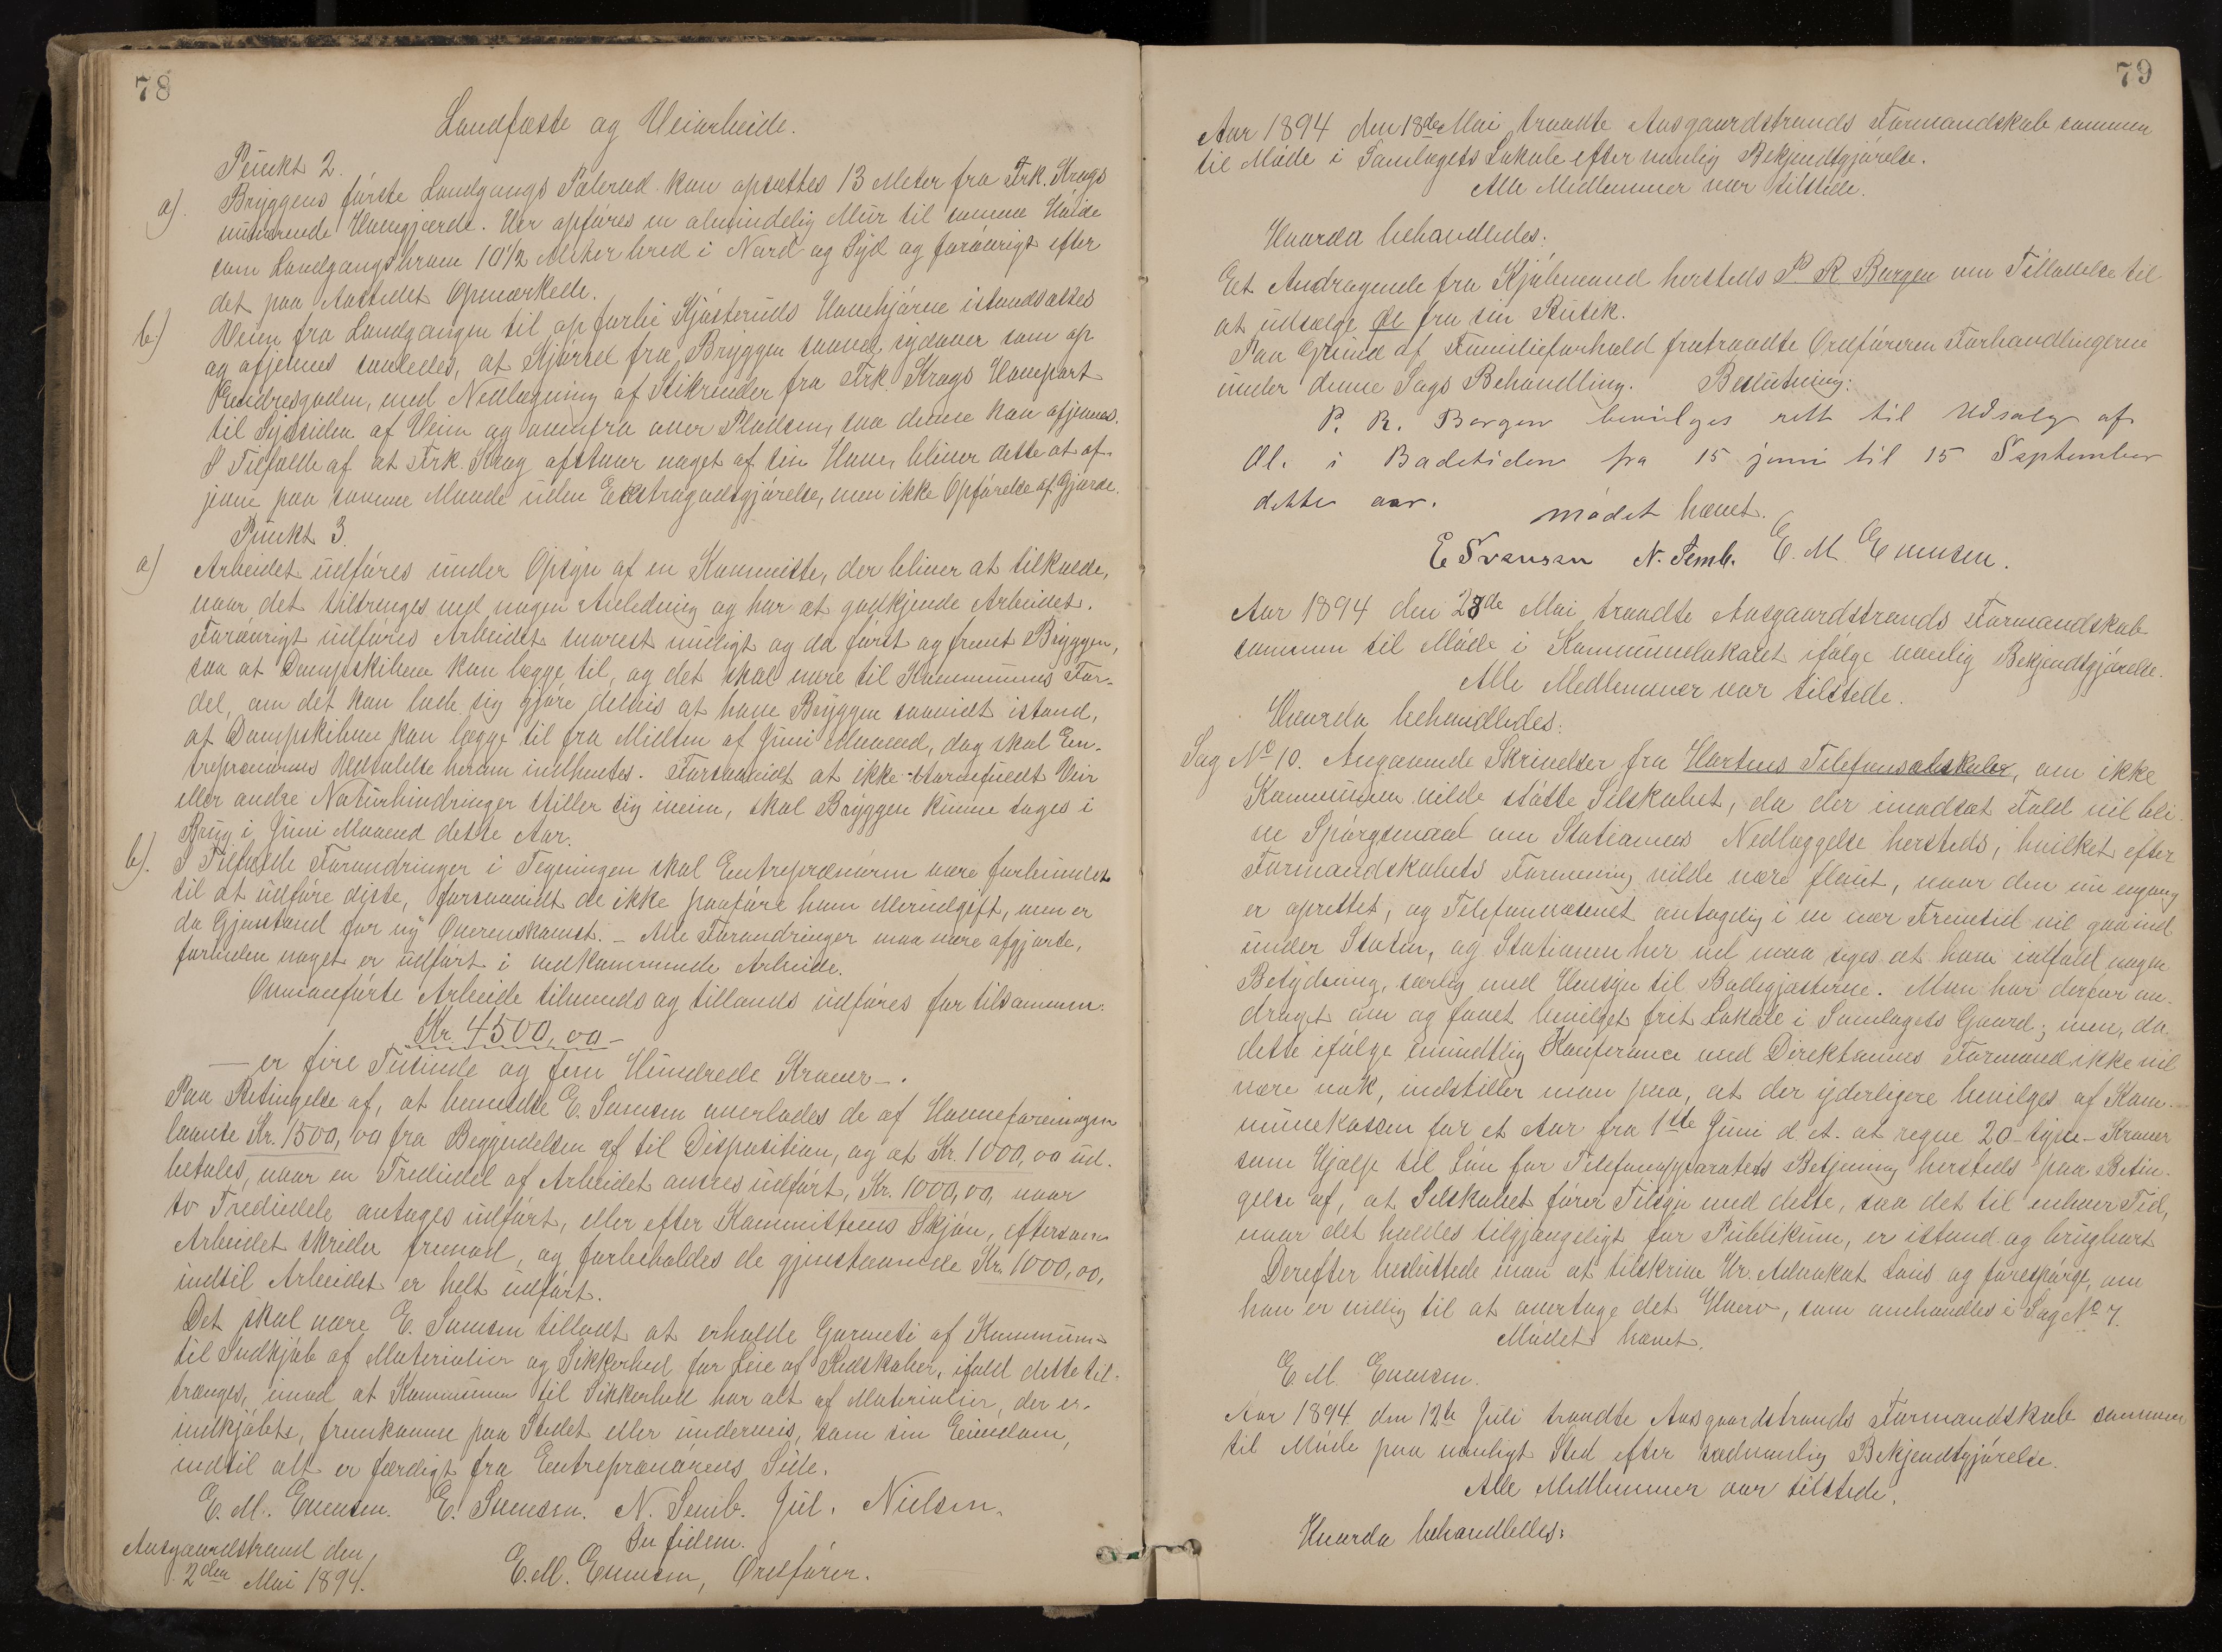 78
Landfæste og Veiarbeide.
Punkt 2.
a). Bryggens første Landgangs Pælerad kan opsættes 13 Meter fra Frk. Krags
nuværende Havegjærde. Der opføres en almindelig Mur til samme Høide
som Landgangsbroen 10½ Meter bred i Nord og Syd og forøvrigt efter
det paa Aastedet Opmærkede.
b.) Veien fra Landgangen til op forbi Kjøsteruds Havehjørne istandsættes
og afjevnes saaledes, at Kjørsel fra Bryggen saavel sydover som op
Endresgaden, med Nedlægning af Stikrender fra Frk Krags Haveport
til Sydsiden af Veien og ovenfra over Pladsen, saa denne kan afjevnes.
I Tilfælde af at Frk. Krag afstaar noget af sin Have, bliver dette at af-
jevne paa samme Maade uden Extragodtgjørelse, men ikke Opførelse af Gjærde.
Punkt 3.
a) Arbeidet udføres under Opsyn af en Kommitte, der bliver at tilkalde,
naar det tiltrenges ved nogen Anledning og har at godkjende Arbeidet.
Forøvrigt udføres Arbeidet snarest muligt og da først og fremst Bryggen,
saa at Dampskibene kan lægge til, og det skal være til Kommunens For-
del, om det kan lade sig gjøre delvis at have Bryggen saavidt istand,
at Dampskibene kan lægge til fra Midten af Juni Maaned, dog skal En-
treprenørens Udtalelse herom indhentes. Forsaavidt at ikke stormfuldt Veir
eller andre Naturhindringer stiller sig iveien, skal Bryggen kunne tages i
Brug i Juni Maaned dette Aar.
b). I Tilfælde Forandringer i Tegningen skal Entreprenøren være forbunden
til at udføre disse, forsaavidt de ikke paaføre ham Merudgift, men er
da Gjenstand for ny Overenskomst. – Alle Forandringer maa være afgjorte,
forinden noget er udført i vedkommende Arbeide.
Ovenanførte Arbeide tilvands og tillands udføres for tilsammen:
Kr. 4500,00 –
– er fire Tusinde og fem Hundrede Kroner –.
Paa Betingelse af, at bemeldte E. Svensen overlades de af Havneforeningen
laante Kr. 1500,00 fra Begyndelsen af til Disposition, og at Kr. 1000,00 ud-
betales, naar en Trediedel af Arbeidet ansees udført, Kr. 1000,00, naar
to Trediedele antages udført, eller efter Kommitteens Skjøn, eftersom
Arbeidet skrider fremad, og forbeholdes de gjenstaaende Kr. 1000,00,
indtil Arbeidet er helt udført.
Det skal være E. Svensen tilladt at erholde Garanti af Kommunen
til Indkjøb af Materialier og Sikkerhed for Leie af Redskaber, ifald dette til-
trænges, imod at Kommunen til Sikkerhed har alt af Materialier, der er
indkjøbte, fremkomne paa Stedet eller underveis, som sin Eiendom,
indtil alt er færdigt fra Entreprenørens Side.
E. M. Evensen. E. Svensen. N. Semb. Jul. Nielsen.
Aasgaardstrand den
2den Mai 1894.
In fidem.
E. M. Evensen, Ordfører.
79
Aar 1894 den 18de Mai traadte Aasgaardstrands Formandskab sammen
til Møde i Samlagets Lokale efter vanlig Bekjendtgjørelse.
Alle Medlemmer var tilstede.
Hvorda behandledes:
Et Andragende fra Kjøbmand hersteds P. R. Borgen om Tilladelse til
at udsælge Øl fra sin Butik.
Paa Grund af Familieforhold fratraadte Ordføreren Forhandlingerne
under denne Sags Behandling. Beslutning:
P. R. Borgen bevilges rett til Udsalg af
Øl. i Badetiden fra 15 juni til 15 September
dette aar.
Mødet hævet.
E Svensen N. Semb. E. M. Evensen.
Aar 1894 den 28de Mai traadte Aasgaardstrands Formandskab
sammen til Møde i Kommunelokalet ifølge vanlig Bekjendtgjørelse.
Alle Medlemmer var tilstede.
Hvorda behandledes:
Sag No 10. Angaaende Skrivelser fra Hortens Telefonselskaber, om ikke
Kommunen vilde støtte Selskabet, da der imodsat Fald vil bli-
ve Spørgsmaal om Stationens Nedlæggelse hersteds, hvilket efter
Formandskabets Formening vilde være flaut, naar den nu engang
er oprettet, og Telefonvæsenet antagelig i en nær Fremtid vil gaa ind
under Staten, og Stationen her vel maa siges at have ialfald nogen
Betydning, særlig med Hensyn til Badegjæsterne. Man har derfor an-
draget om og faaet bevilget frit Lokale i Samlagets Gaard; men, da
dette ifølge mundtlig Konferance med Direktionens Formand ikke vil
være nok, indstiller man paa, at der yderligere bevilges af Kom-
munekassen for et Aar fra 1ste Juni d. A. at regne 20 – tyve – Kroner
som Hjælp til Løn for Telefonapparatets Betjening hersteds paa Betin-
gelse af, at Selskabet fører Tilsyn med dette, saa det til enhver Tid,
naar det holdes tilgjængeligt for Publikum, er istand og brugbart.
Derefter besluttede man at tilskrive Hr. Advokat Lous og forespørge, om
han er villig til at overtage det Hverv, som omhandles i Sag No 7.
Mødet hævet.
E. M. Evensen.
Aar 1894 den 12te Juli traadte Aasgaardstrands Formandskab sammen
til Møde paa vanligt Sted efter sædvanlig Bekjendtgjørelse.
Alle Medlemmer var tilstede.
Hvorda behandledes: